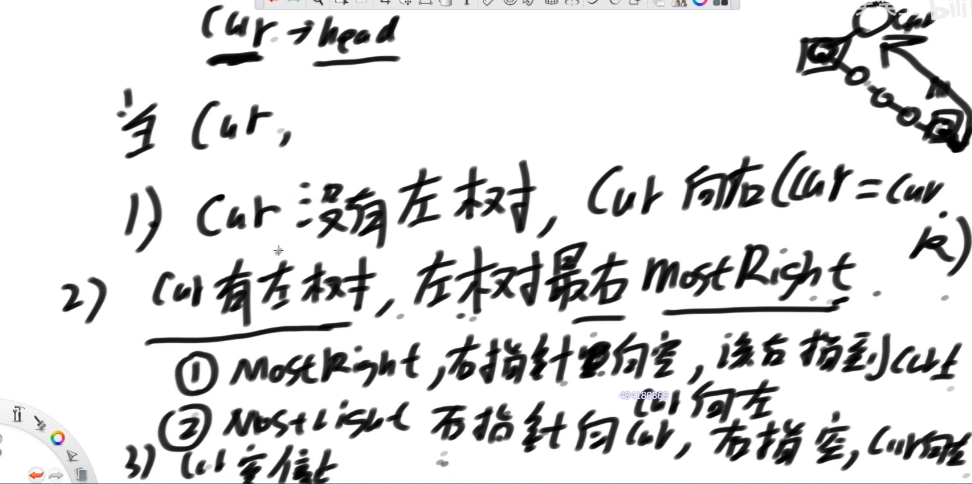 cur → head
cur
当 cur,
1) cur 没有左树, cur 向右(cur = cur
R)
2) cur 有左树, 左树最右 mostRight.
① MostRight, 右指针 向空, 让右指到 cur上
cur 向左
② MostRight 右指针向 cur, 右指空, cur 向右
3) cur 空停止